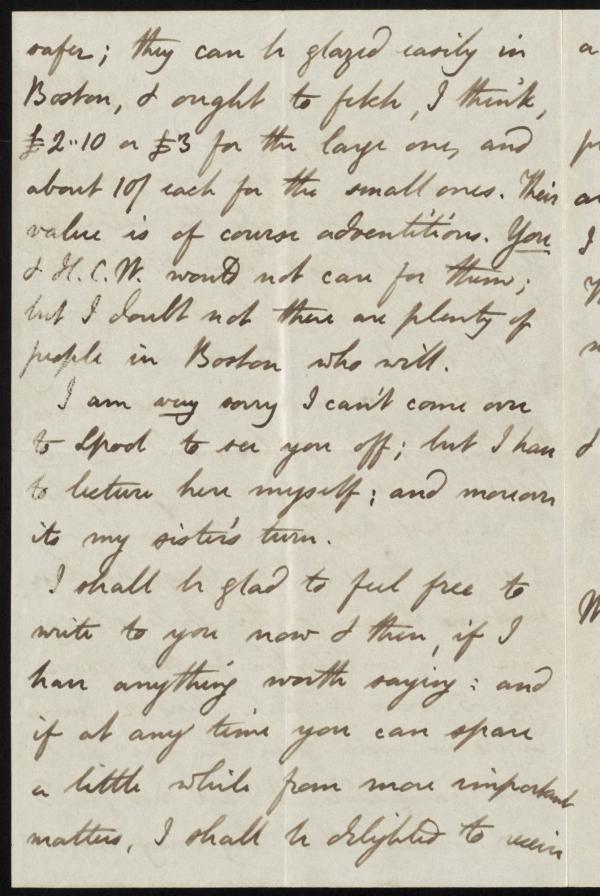 safer; they can be glazed easily in
Boston, & ought to fetch, I think,
£2"10 or £3 for the large one, and
about 10/ each for the small ones. Their
value is of course adventitious. You
& H.C.W. would not care for them;
but I doubt not there are plenty of
people in Boston who will.
I am very sorry I can't come over
to Lpool to see you off; but I have
to lecture here myself; and moreover
its my sister's turn.
I shall be glad to feel free to
write to you now & then, if I
have anything worth saying: and
if at any time you can spare
a little while from more important
matters, I shall be delighted to receive